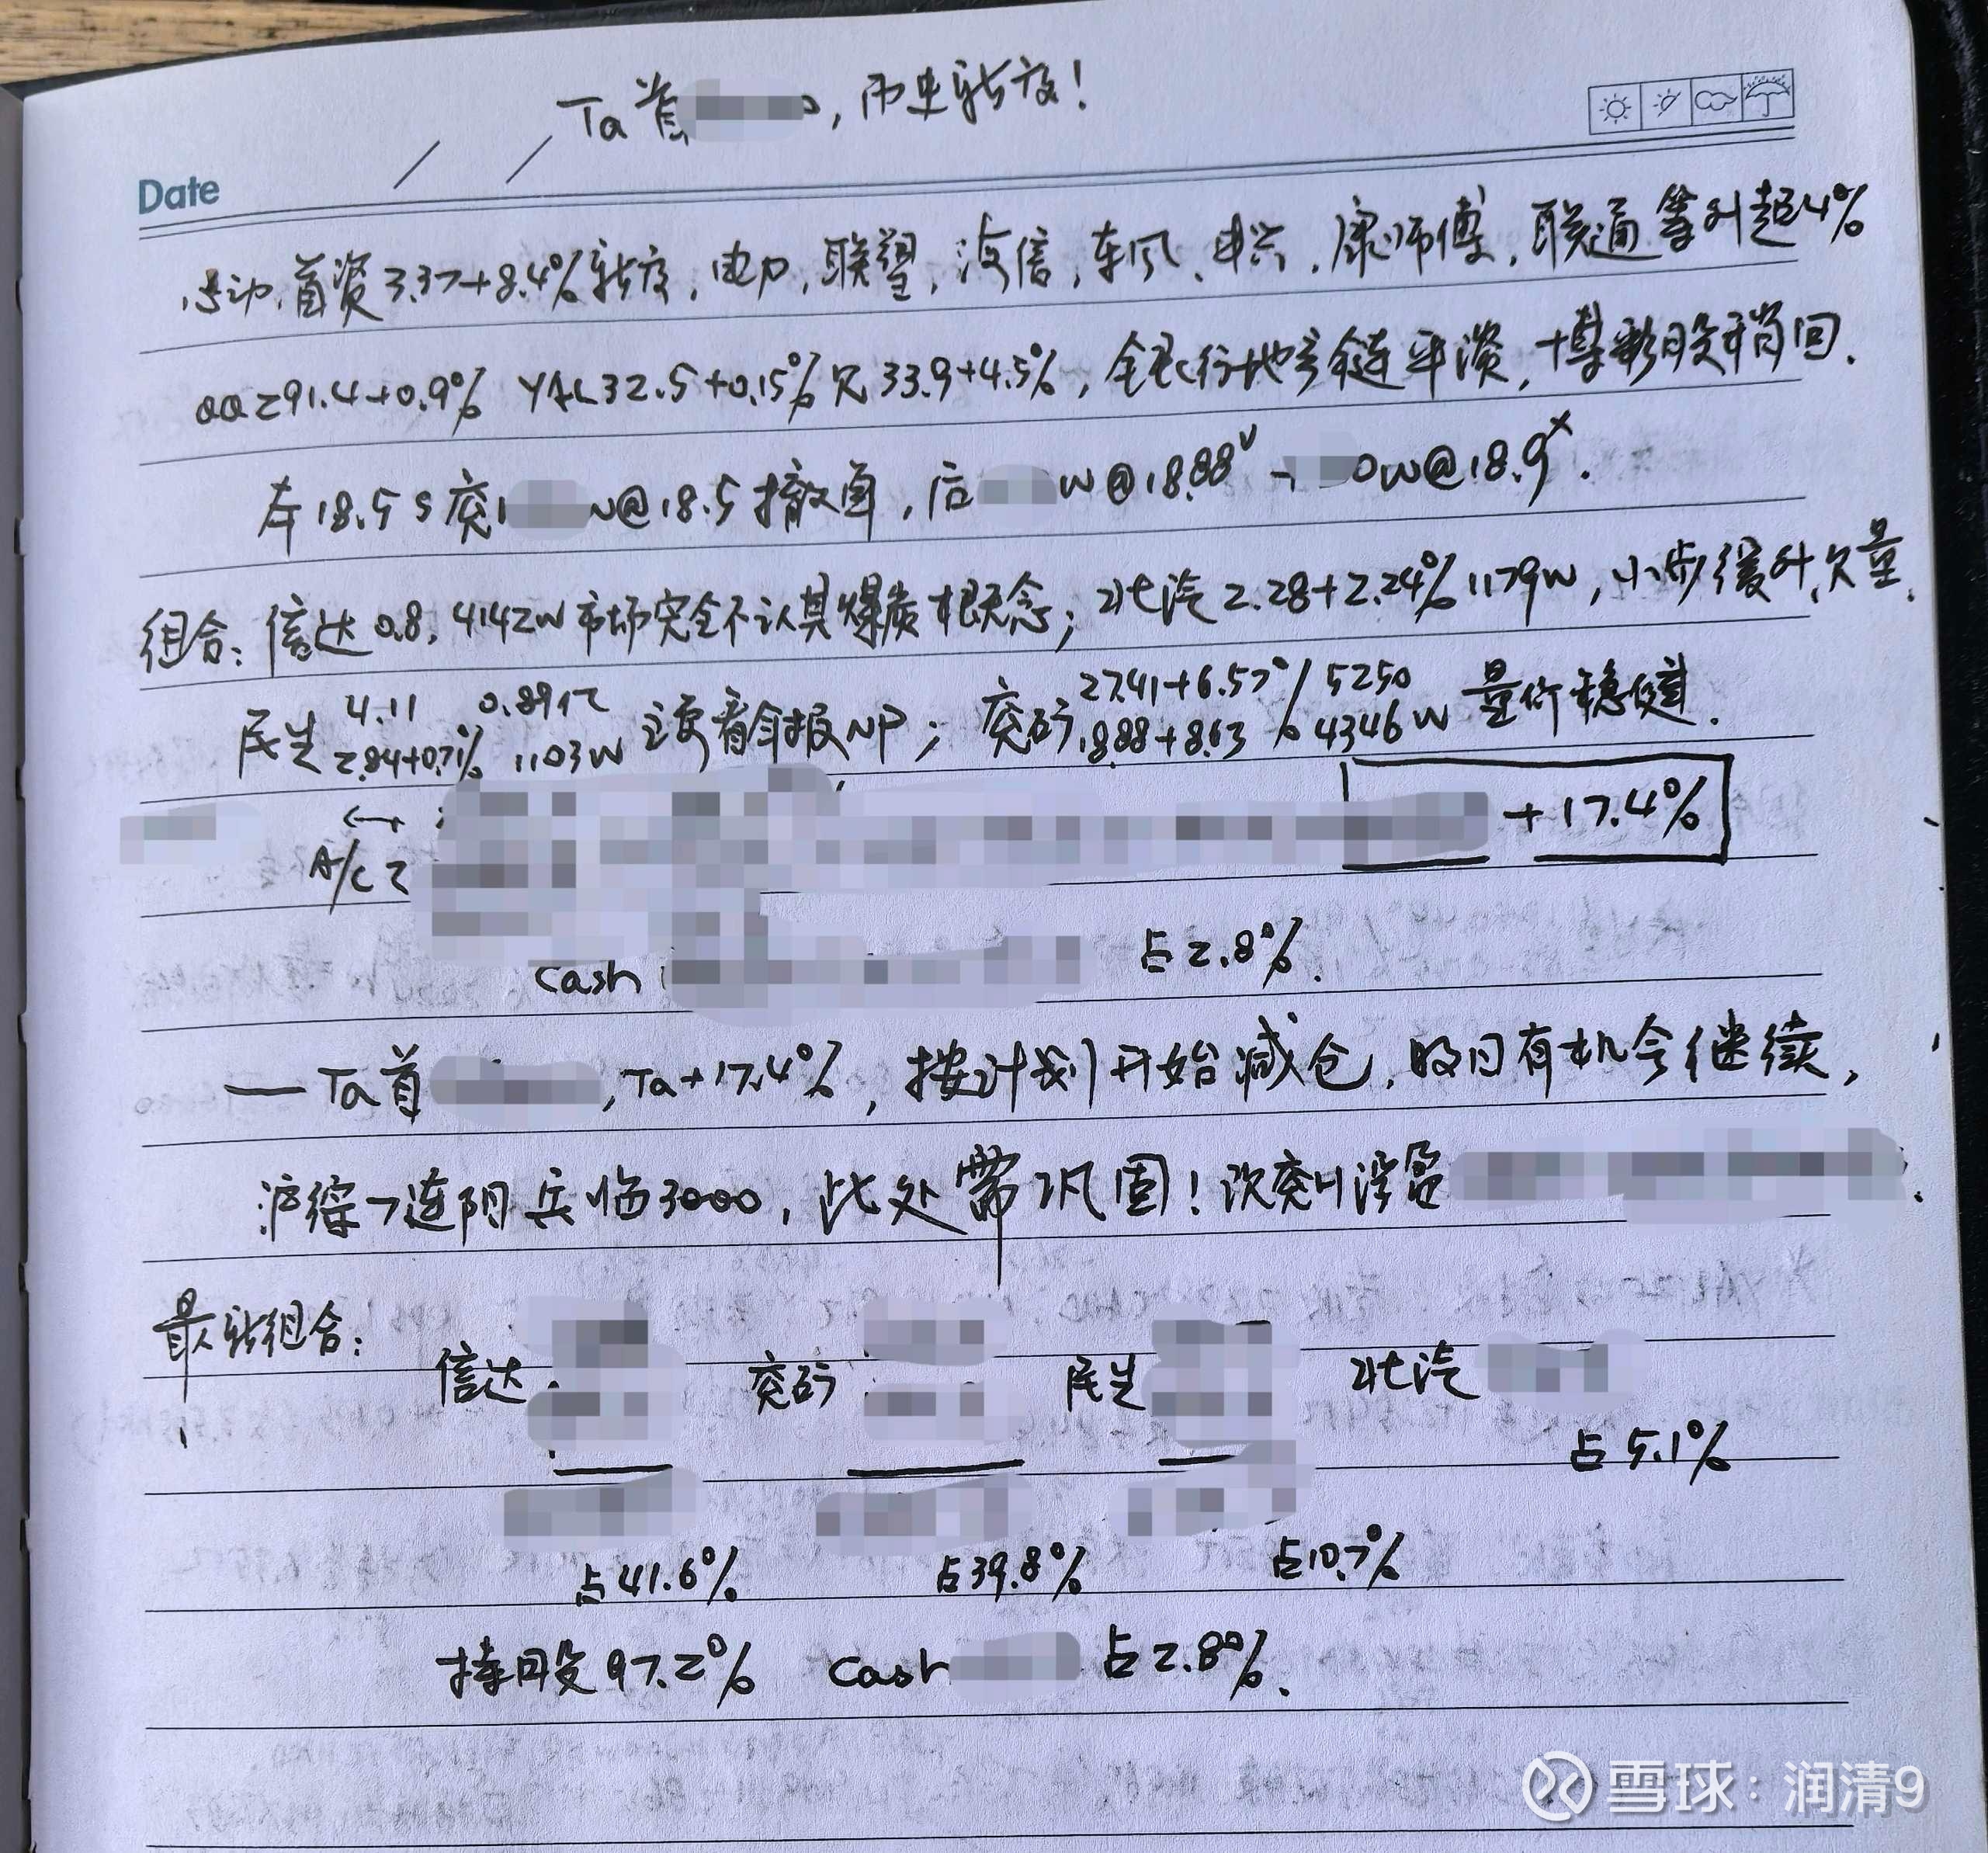 Ta首 , 历史新高!
Date
异动,首资3.37+8.4%新高,电力,联塑,海信,东风,中兴,康师傅,联通等升超4%
QQ291.4+0.9% YAL32.5+0.15% 兄33.9+4.5%,金银行地产链平淡,博彩股稍回.
在18.5 S兖1 W@18.5撤单,后 W@18.88 - 0W@18.9×.
组合:信达0.8,4142W市场完全不认其爆发概念;北汽2.28+2.24% 1179W,小步缓升,欠量.
民生 4.11 0.89亿 主要看年报NP; 兖矿 27.41+6.57% 5250 量价稳健.
2.84+0.71% 1103W 18.88+8.63% 4346W
+17.4%
A/C2
Cash 占2.8%.
— Ta首 ,Ta+17.4%,按计划开始减仓,明日有机会继续,
沪综7连阳兵临3000,此处需巩固!次兖H浮盈 .
最新组合:
信达 兖矿 民生 北汽
占5.1%
占41.6% 占39.8% 占10.7%
持股97.2% Cash 占2.8%.
雪球:润清9